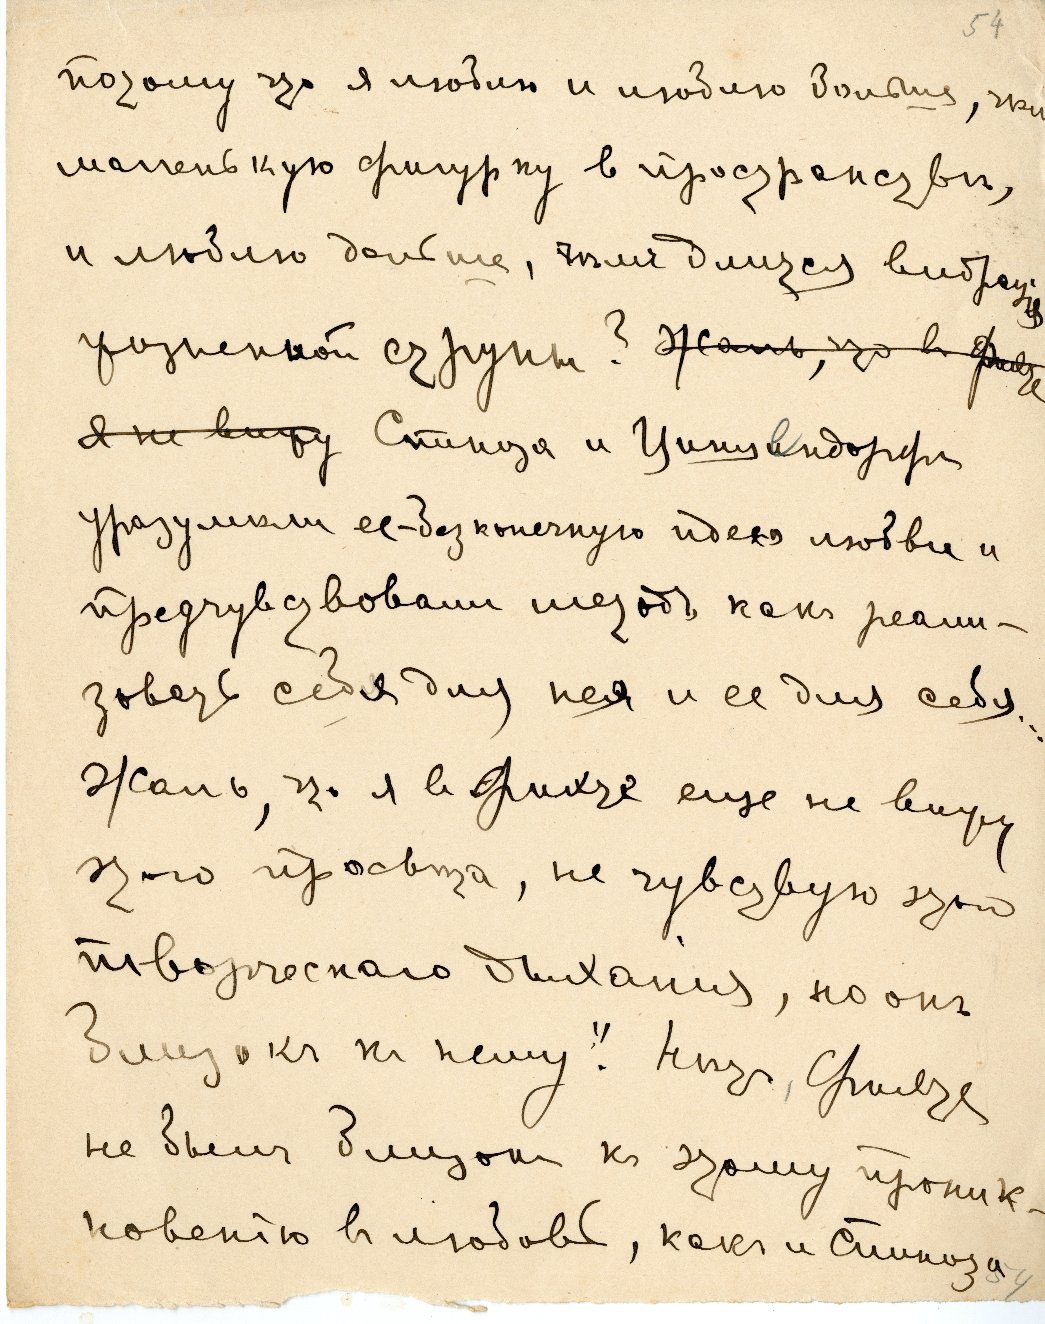 54
потому что я люблю и люблю больше, чѣм
маленькую фигурку в пространствѣ,
и люблю дольше, чѣмъ длится вибрац
трізненной струны? Жаль, что в Фихте
я не вижу Спиноза и Цинцендорфъ
уразумѣли ее – безконечную идею любви и
предчувствовали методъ, какъ реали-
зовать себя для нея и ее для себя...
Жаль, что я в Фихте еще не вижу
этого просвѣта, не чувствую этого
творческаго дыханія, но онъ
близокъ къ нему". Нѣтъ, Фихте
не былъ близокъ къ этому проник-
новенію въ любовь, какъ и Спиноза
54